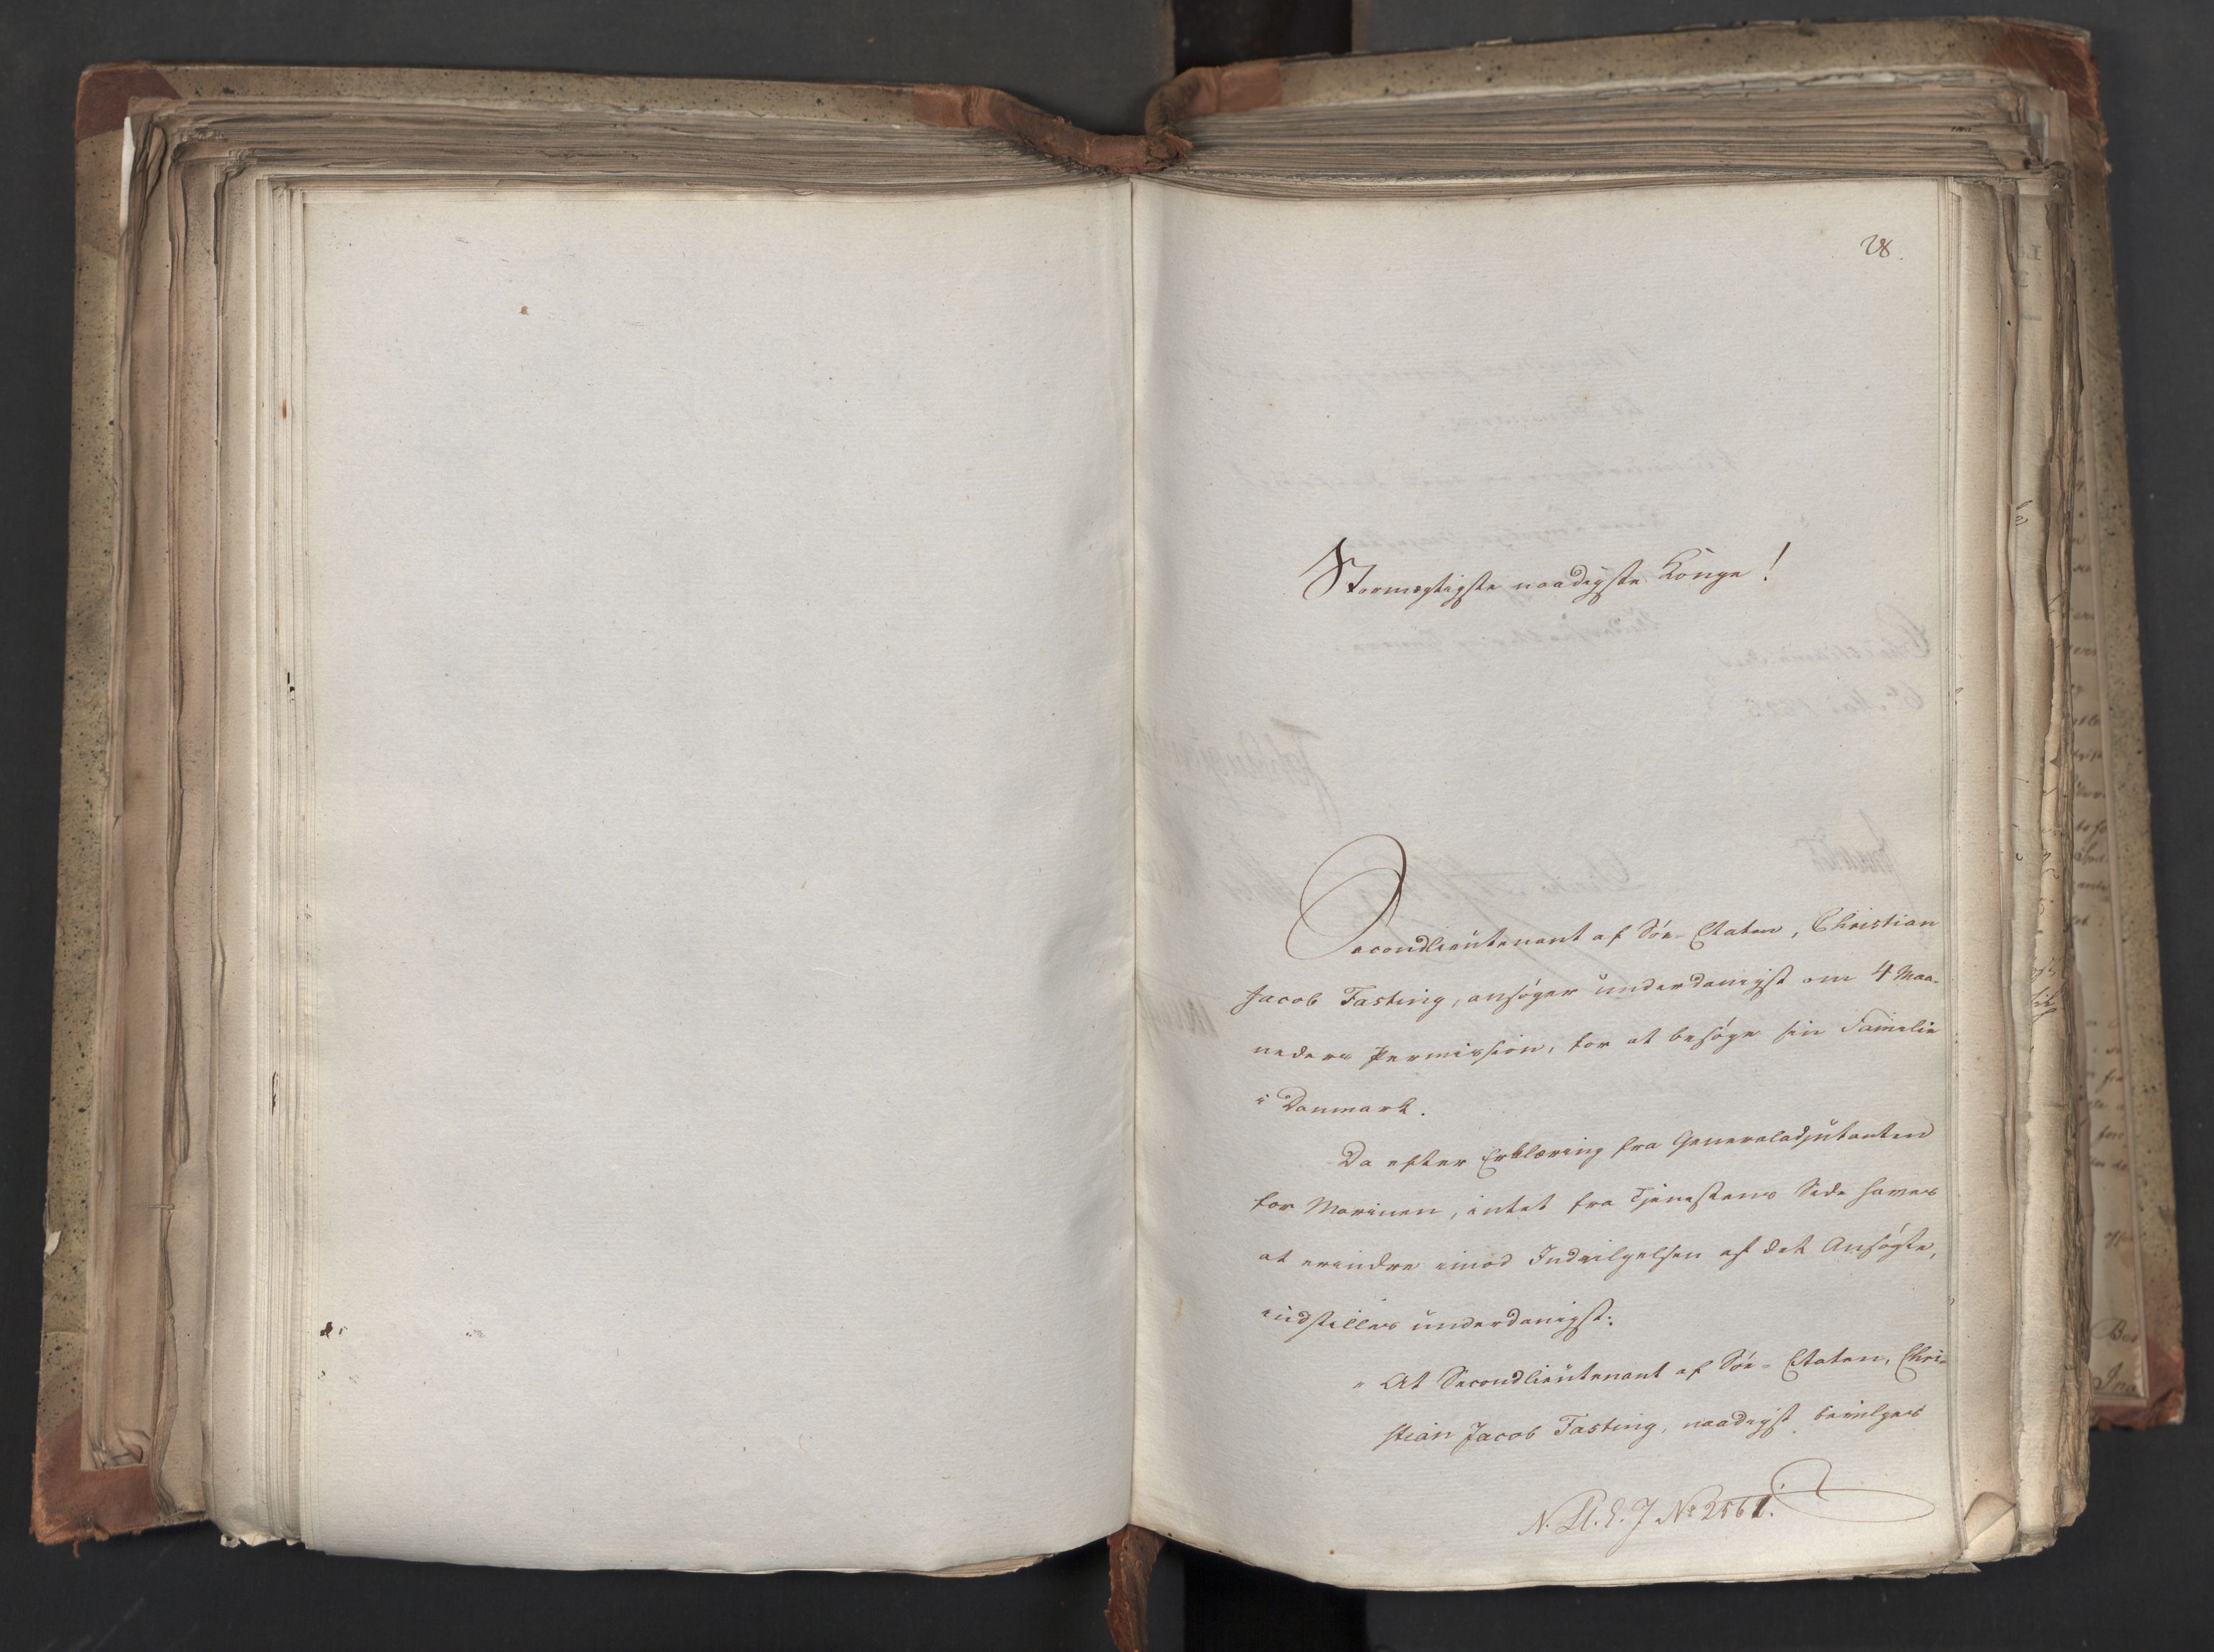 28.
Stormægtigste naadigste Konge!
Secondlieutenant af Søe-Etaten, Christian
Jacob Fasting, ansøger underdanigst om 4 Maa-
neders Permission, for at besøge sin Familie
i Danmark.
Da efter Erklæring fra Generaladjutanten
for Marinen, intet fra Tjenestens Side haves
at erindre imod Indvilgelsen af det Ansøgte,
indstilles underdanigst:
"At Secondlieutenant af Søe-Etaten, Chri-
stian Jacob Fasting, naadigst bevilges